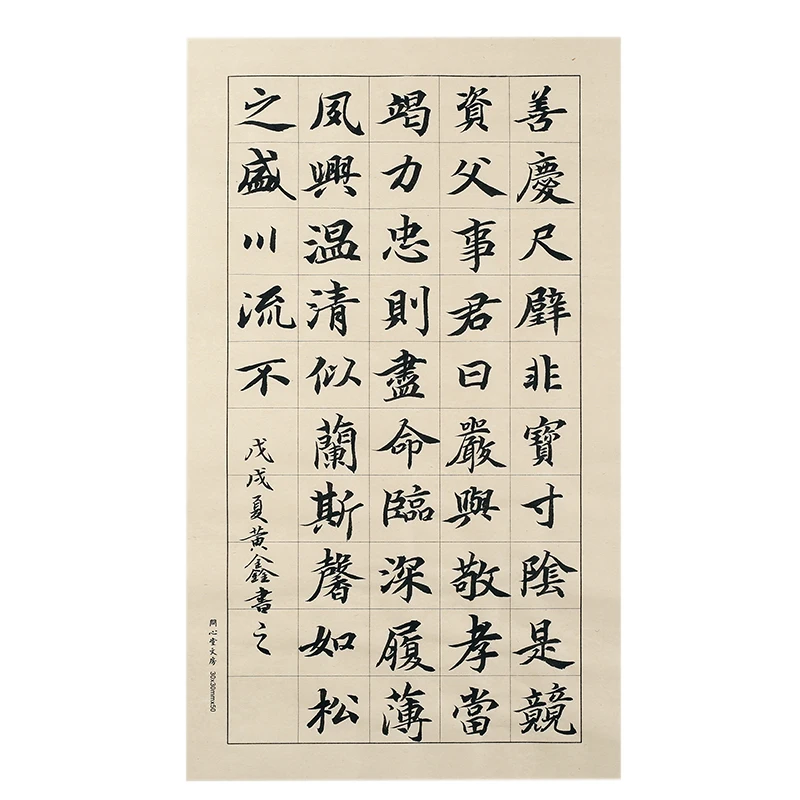 善慶尺璧非寶寸陰是競
資父事君曰嚴與敬孝當
竭力忠則盡命臨深履薄
夙興温清似蘭斯馨如松
之盛川流不
戊戌夏黄鑫書之
問心堂文房 30x30mmx50